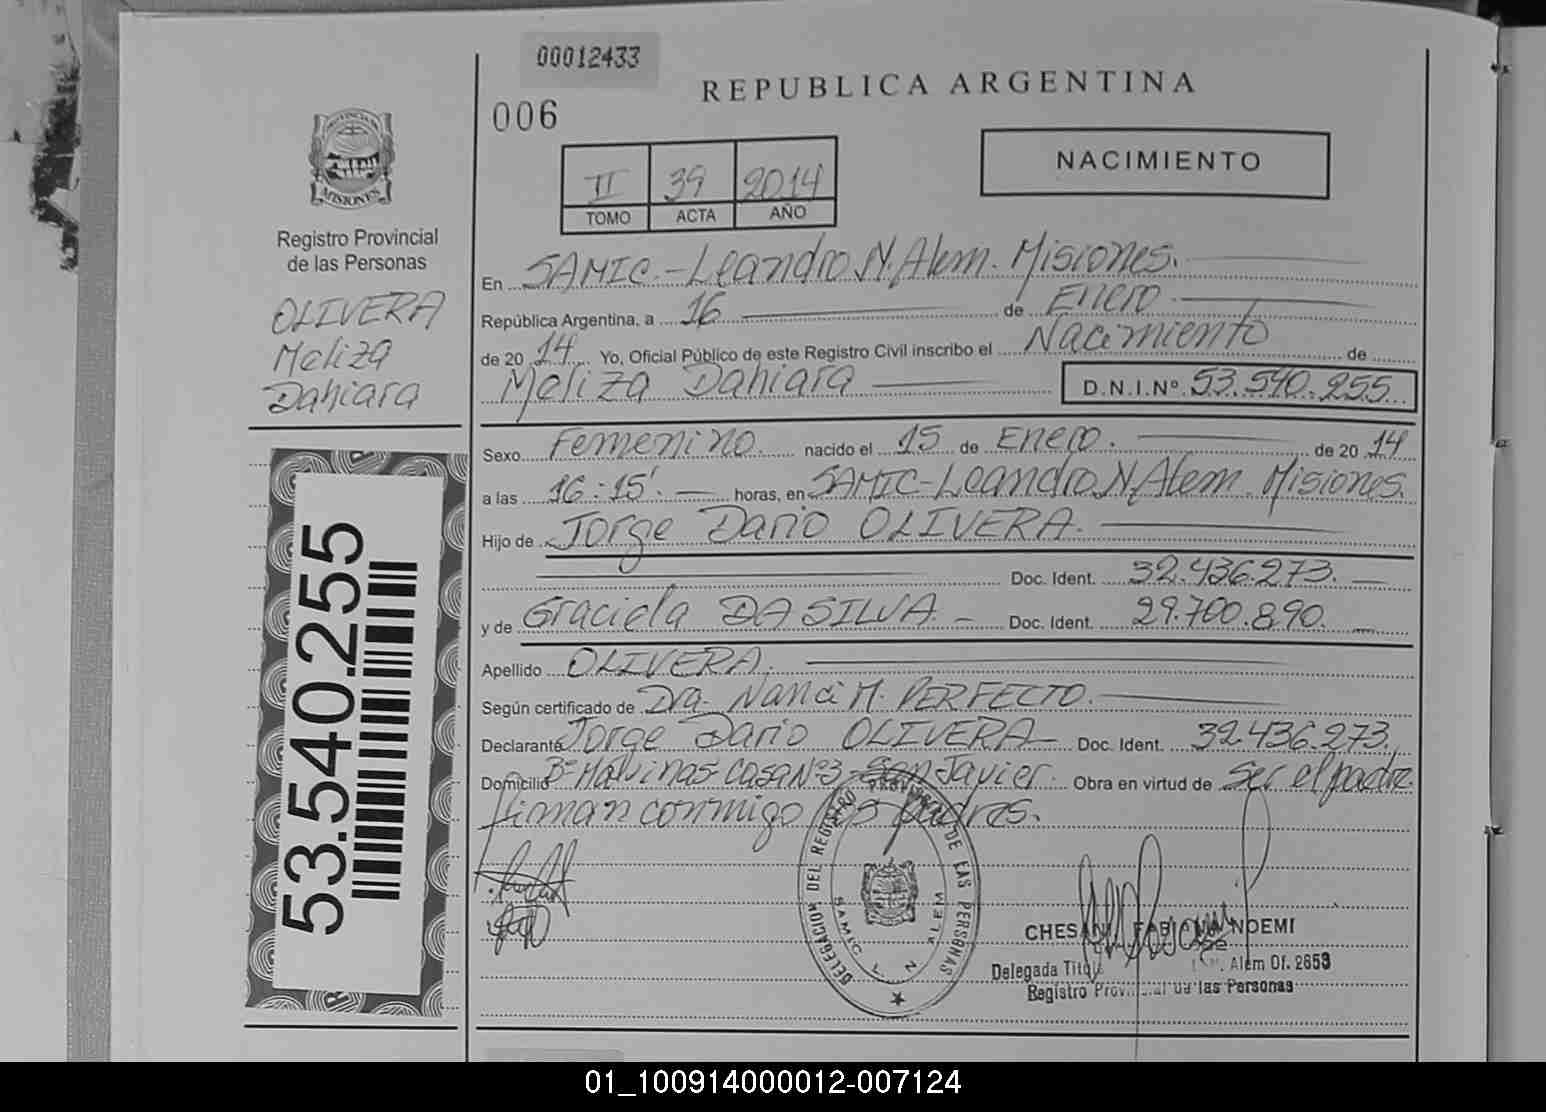 00012433
006
REPUBLICA ARGENTINA
NACIMIENTO
II 39 2014
TOMO ACTA AÑO
PROVINCIA DE
MISIONES
Registro Provincial
de las Personas
OLIVERA
Meliza
Dahiara
53.540.255
En SAMIC.-Leandro N. Alem. Misiones.
República Argentina, a 16 de Enero
de 20 14 Yo, Oficial Público de este Registro Civil inscribo el Nacimiento de
Meliza Dahiara D.N.I.Nº 53.540.255
Sexo Femenino. nacido el 15 de Enero. de 20 14
a las 16:15'. horas, en SAMIC-Leandro N. Alem. Misiones.
Hijo de Jorge Dario OLIVERA.
Doc. Ident. 32.436.273.
y de Graciela DA SILVA - Doc. Ident. 29.700.890.
Apellido OLIVERA.
Según certificado de Dra. Nanci M. PERFECTO.
Declarante Jorge Dario OLIVERA Doc. Ident. 32.436.273.
Domicilio Bº Malvinas-Casa Nº3-San Javier. Obra en virtud de Ser el padre.
firman conmigo los padres.
DELEGACION DEL REGISTRO PROVINCIAL DE LAS PERSONAS
SAMIC L. N. ALEM
CHESANI, FABIANA NOEMI
Delegada Titular Alem Of. 2653
Registro Provincial de las Personas
01_100914000012-007124